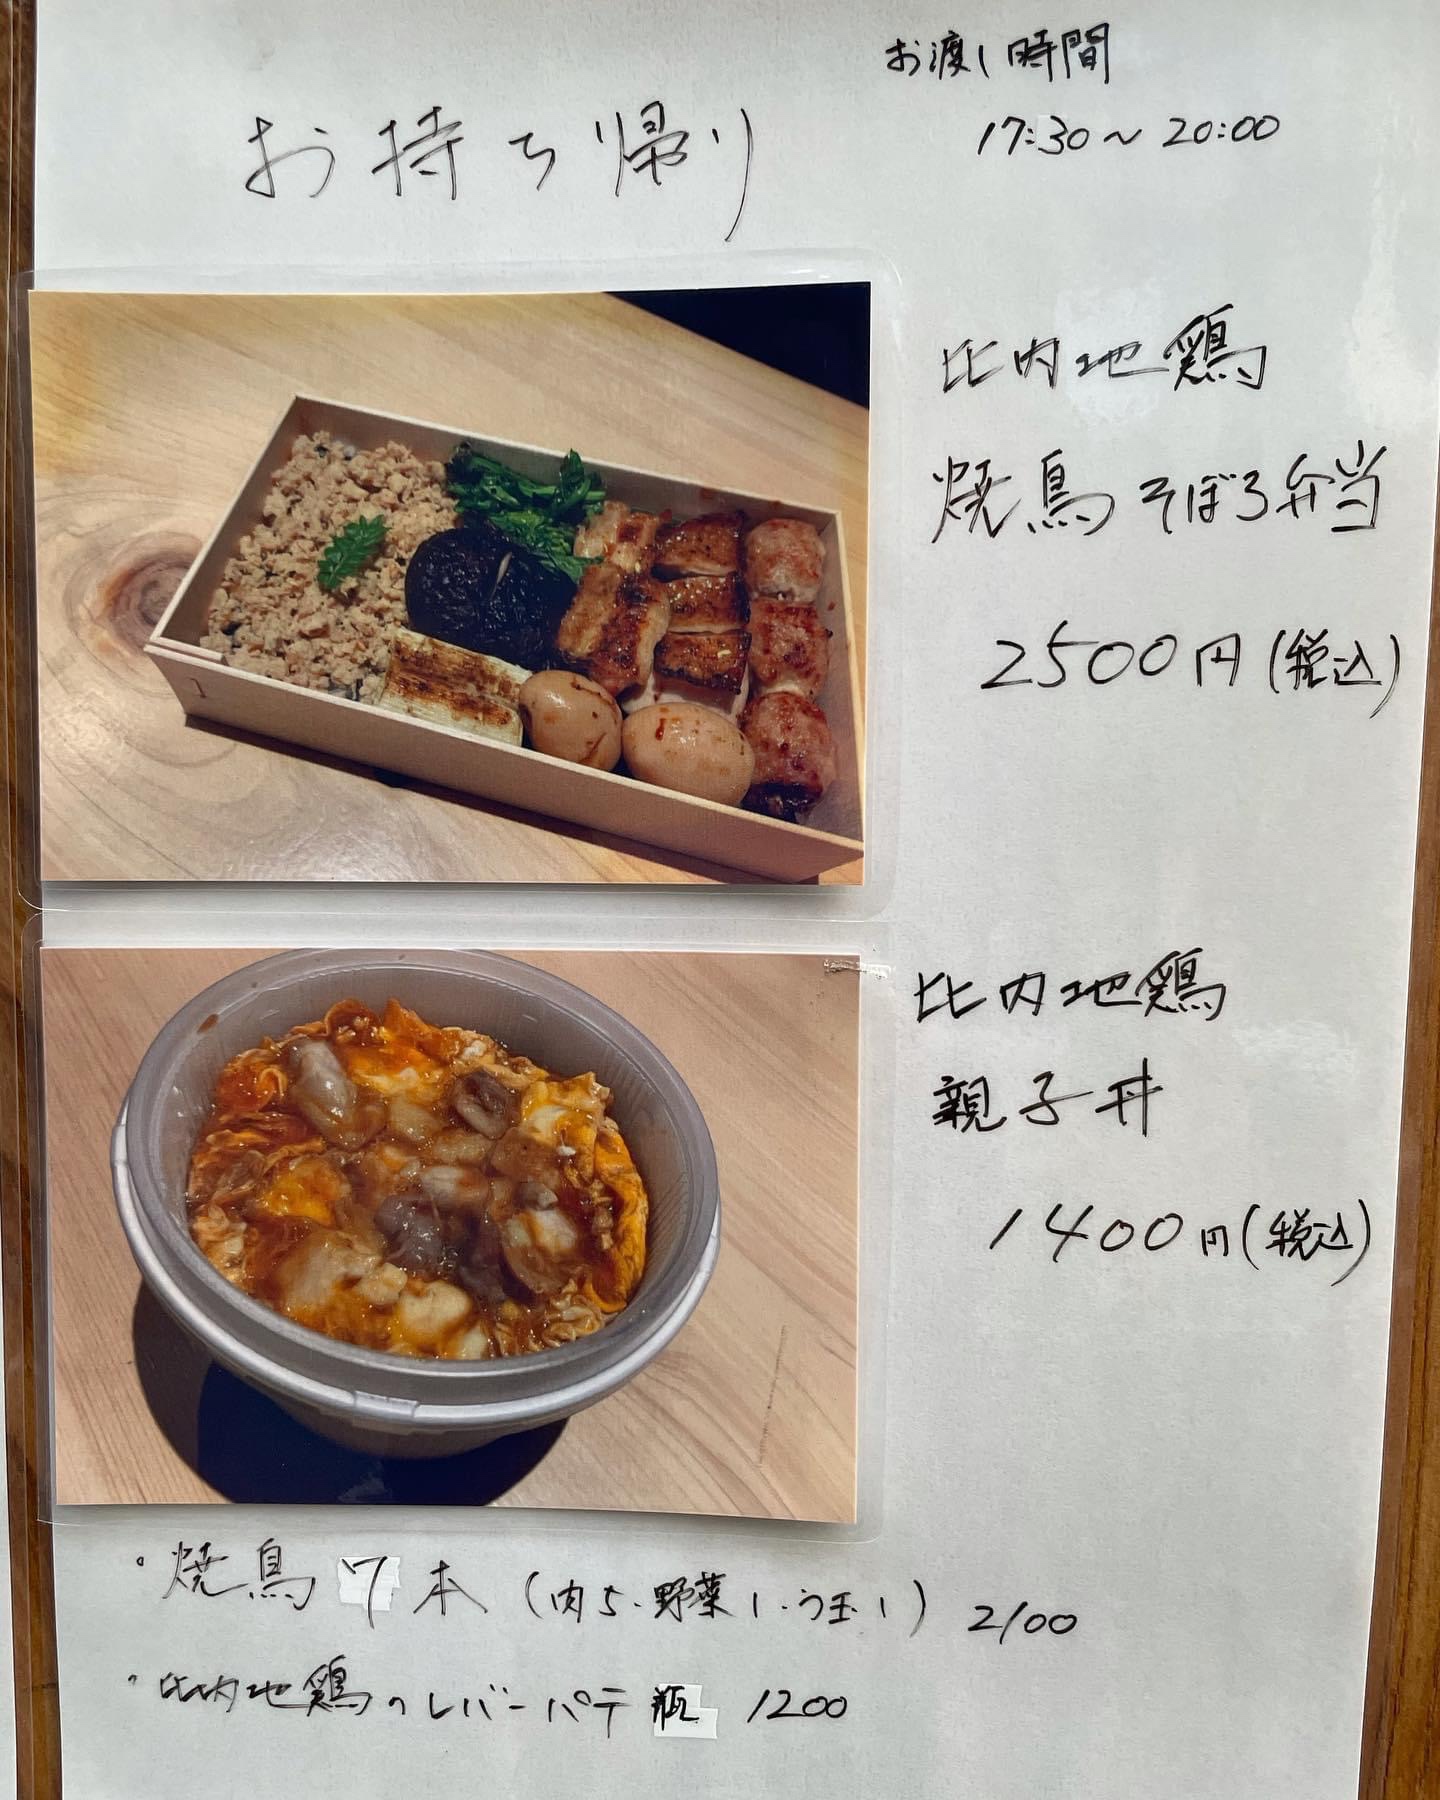 お渡し時間
17:30〜20:00
お持ち帰り
比内地鶏
焼鳥そぼろ弁当
2500円(税込)
比内地鶏
親子丼
1400円(税込)
・焼鳥7本(肉5・野菜1・う玉1) 2100
・比内地鶏のレバーパテ瓶 1200